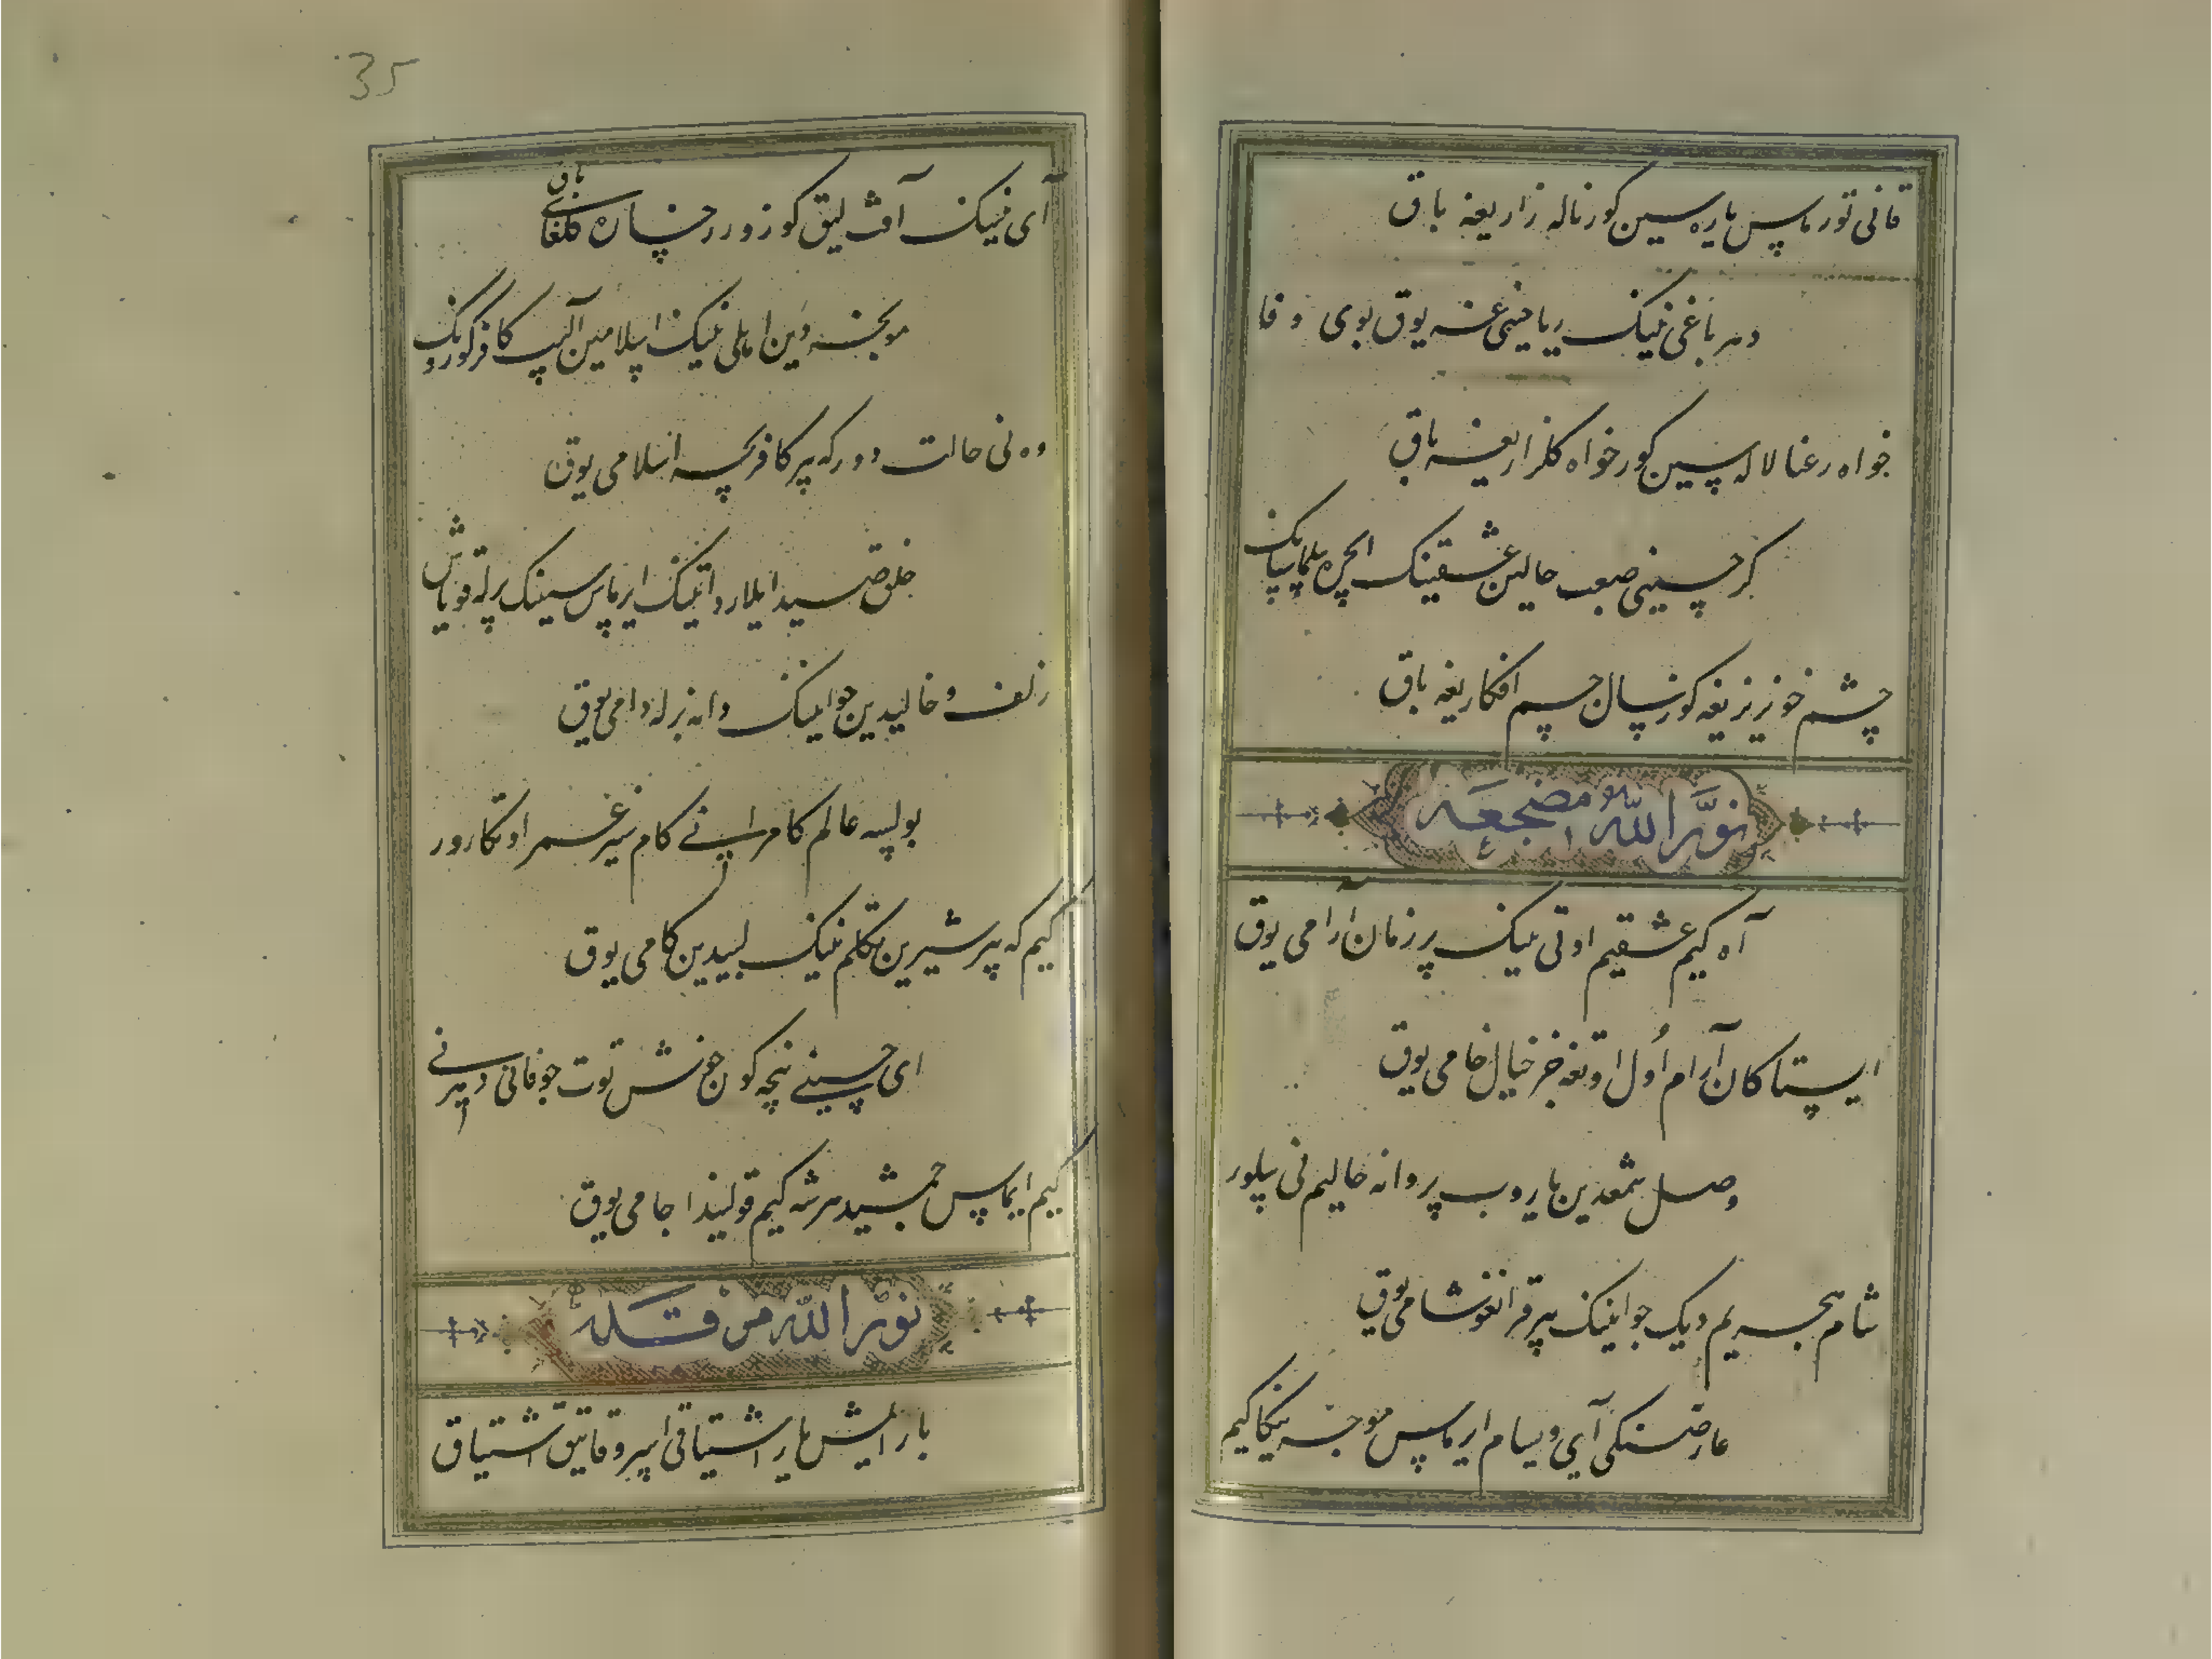 قانی تورماس یاره سین کور ناله زاریغه باق
دهر باغی نینک ریاحینی غه یوق بوی وفا
خواه رعنا لاله سین کور خواه کلزاریغه باق
کر حسینی صعب حالین عشقینک ایچره بیلماسانک
چشم خونریزیغه کوز سال جسم افکاریغه باق
نور الله مضجعه
آه کیم عشقیم اوتی نینک بر زمان آرامی یوق
ایستاکان آرام اول اوتغه جز خیال خامی یوق
وصل شمعدین یاروب پروانه حالیم نی بیلور
شام هجریم دیک جوانینک بیر قرانغو شامی یوق
عارضینکی آی دیسام ایرماس موجه نیکا کیم
آی نینک آفت لیق کوزو رخساره کلفامی یوق
مونجه دین اهلی نینک اسلامین آلیب کافر کورونک
وه نی حالت دور که بیر کافرچه اسلامی یوق
خلق صیدایلاردا تینک ایرماس سینینک برله قویاش
زلف و خالیدین جوانینک دانه برله دامی یوق
بولسه عالم کامرانی کام نیز غمر اوتکارور
کیم که بیر شیرین تکلم نینک لبیدین کامی یوق
ای حسینی نیچه کون خوش توت جو فانی دهرنی
کیم ایماس جمشید هر شه کیم قولیندا جامی یوق
نور الله مرقده
یار ایمیش یار اشتیاقی اسیرو قاتیق اشتیاق